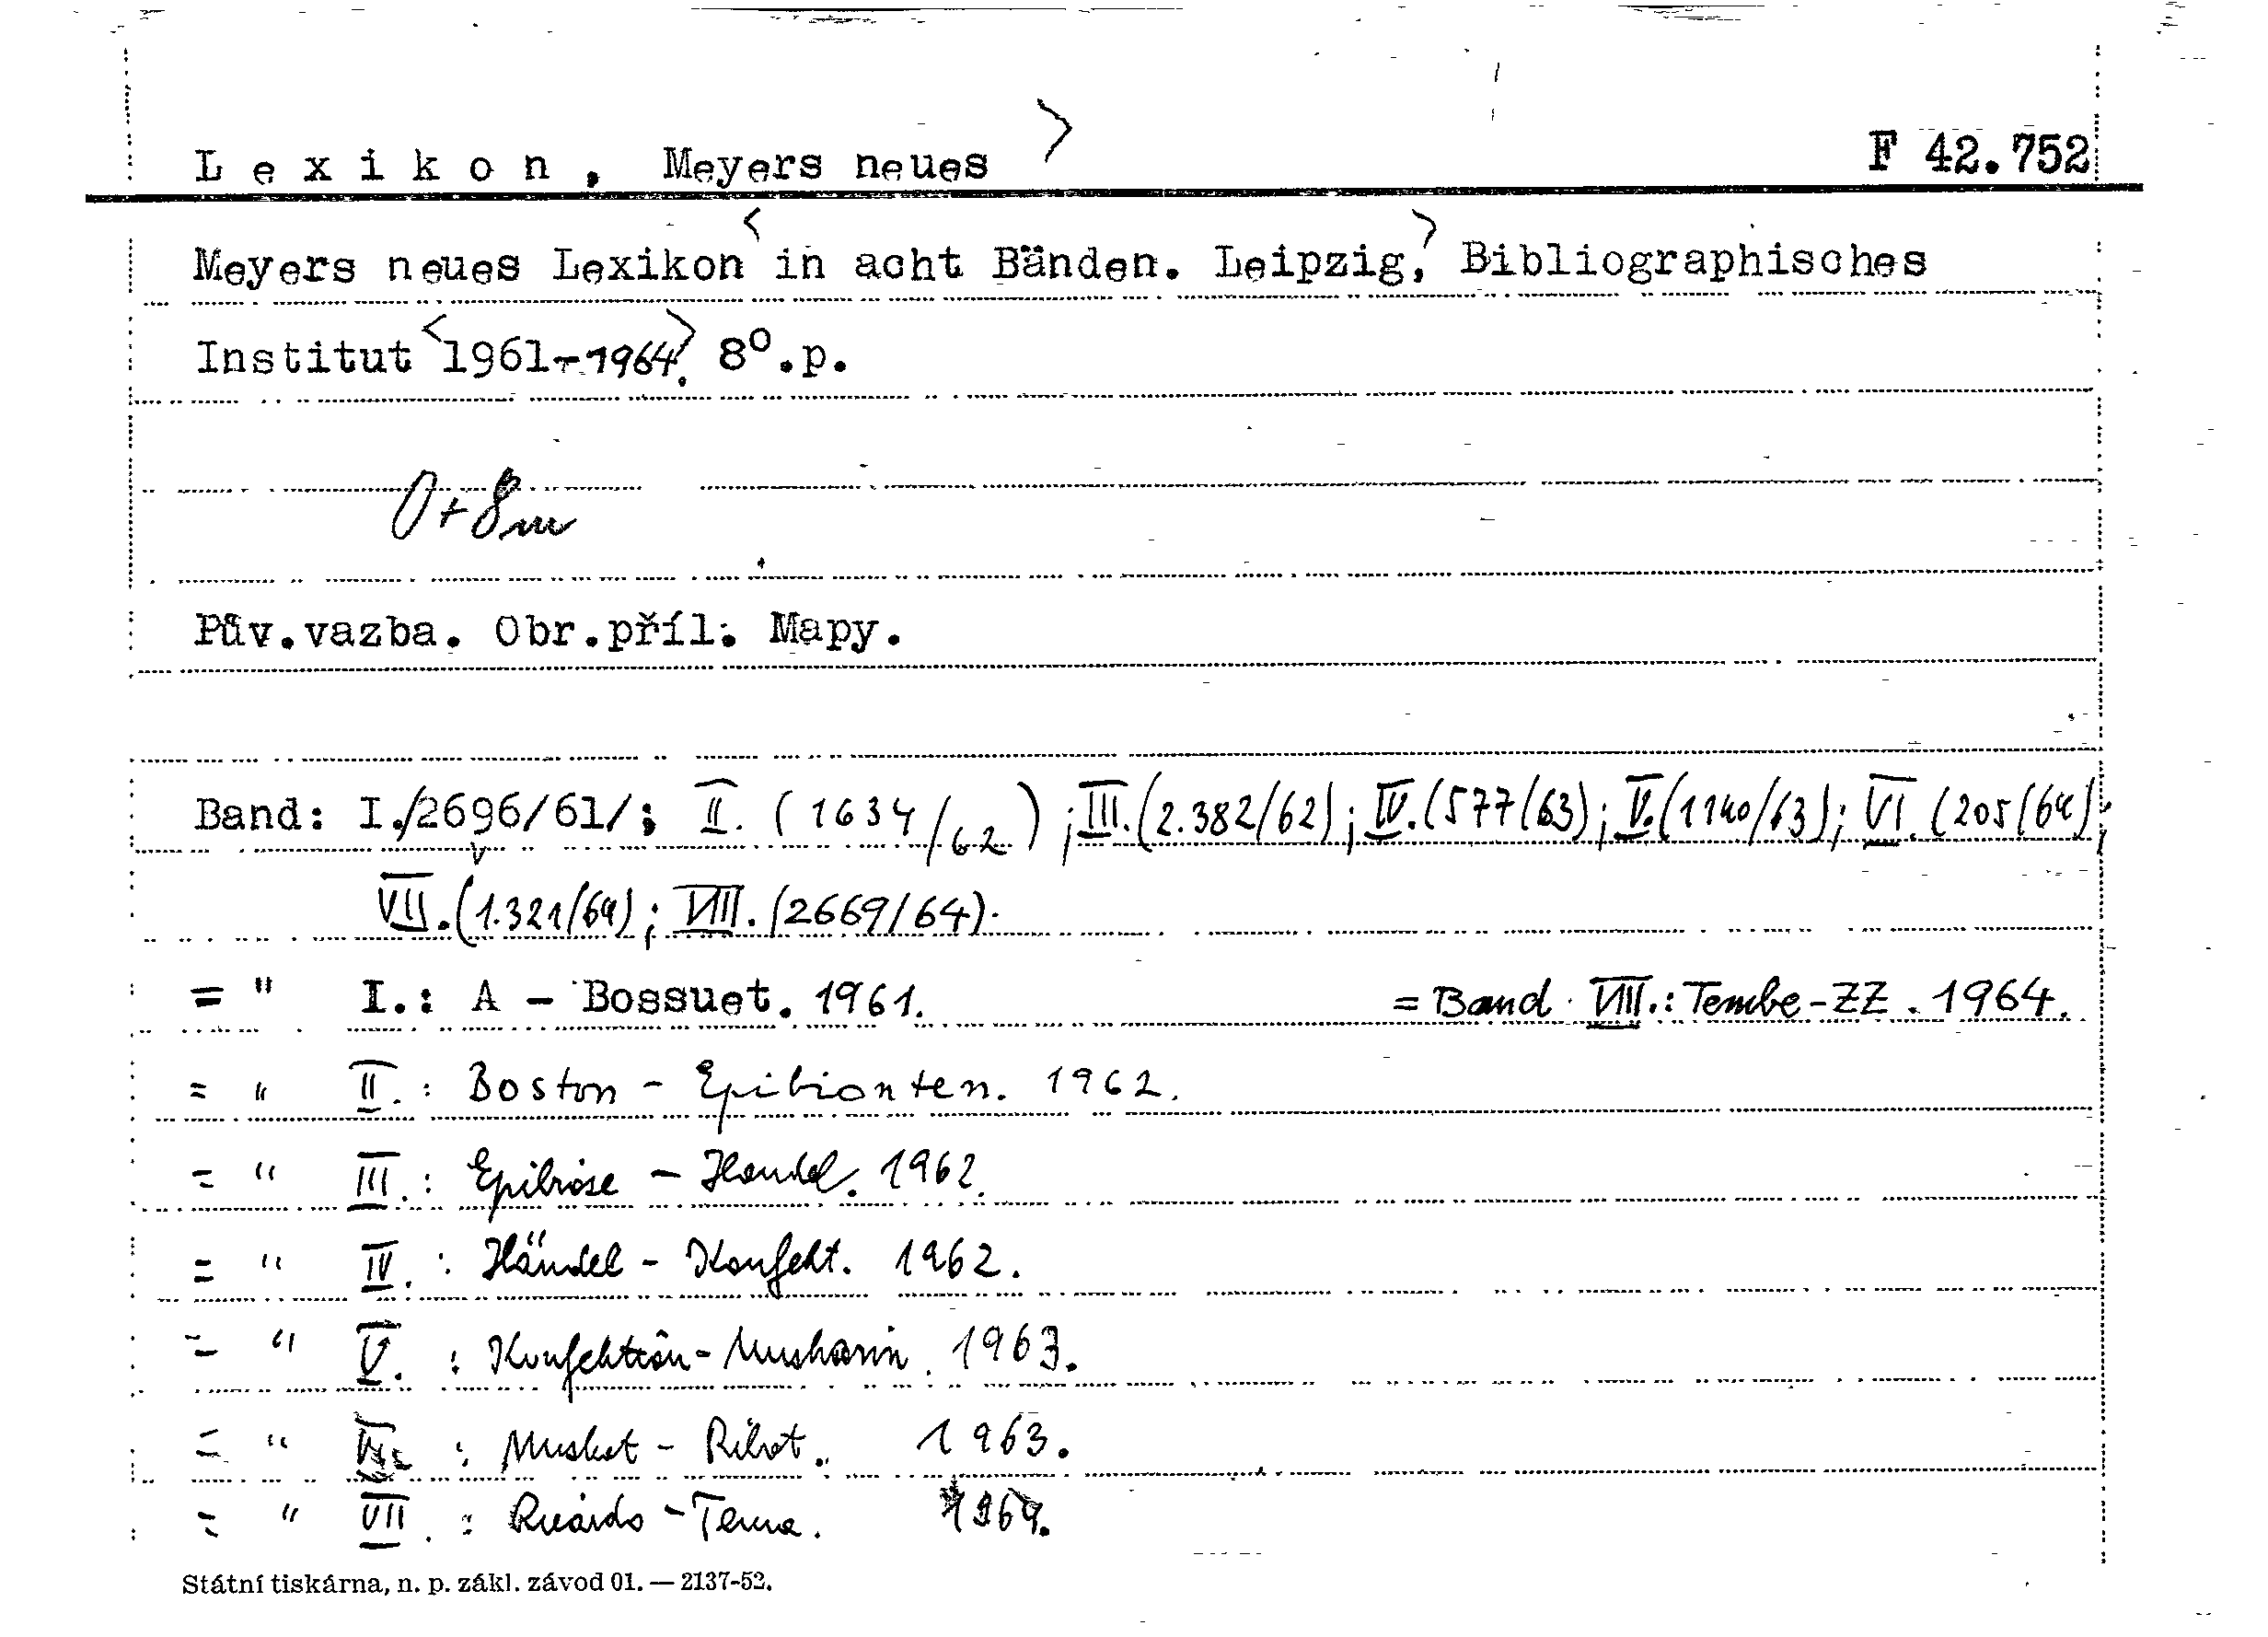 Lexikon, Meyers neues > F 42.752
Meyers neues Lexikon < in acht Bänden. Leipzig, > Bibliographisches
Institut < 1961-1964 >. 8°.p.
0+8m
Pův.vazba. Obr.příl. Mapy.
Band: I./2696/61/; II. (1634/62); III.(2.382/62); IV.(577/63); V.(1140/63); VI.(205/64);
VII.(1.321/64); VIII.(2669/64).
= " I.: A - Bossuet. 1961. = Band VIII.: Tembe-ZZ. 1964.
= " II.: Boston - Epibionten. 1962.
= " III.: Epibiose - Handel. 1962.
= " IV.: Händel - Konfekt. 1962.
= " V.: Konfektion-Muskarin. 1963.
= " VI.: Musket - Ribot. 1963.
= " VII.: Ricardo - Tema. 1964.
Státní tiskárna, n. p. zákl. závod 01. — 2137-52.